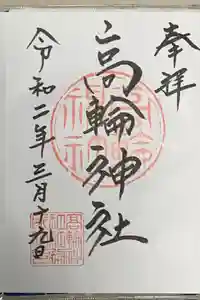 奉拝
高輪神社
令和二年三月十九日